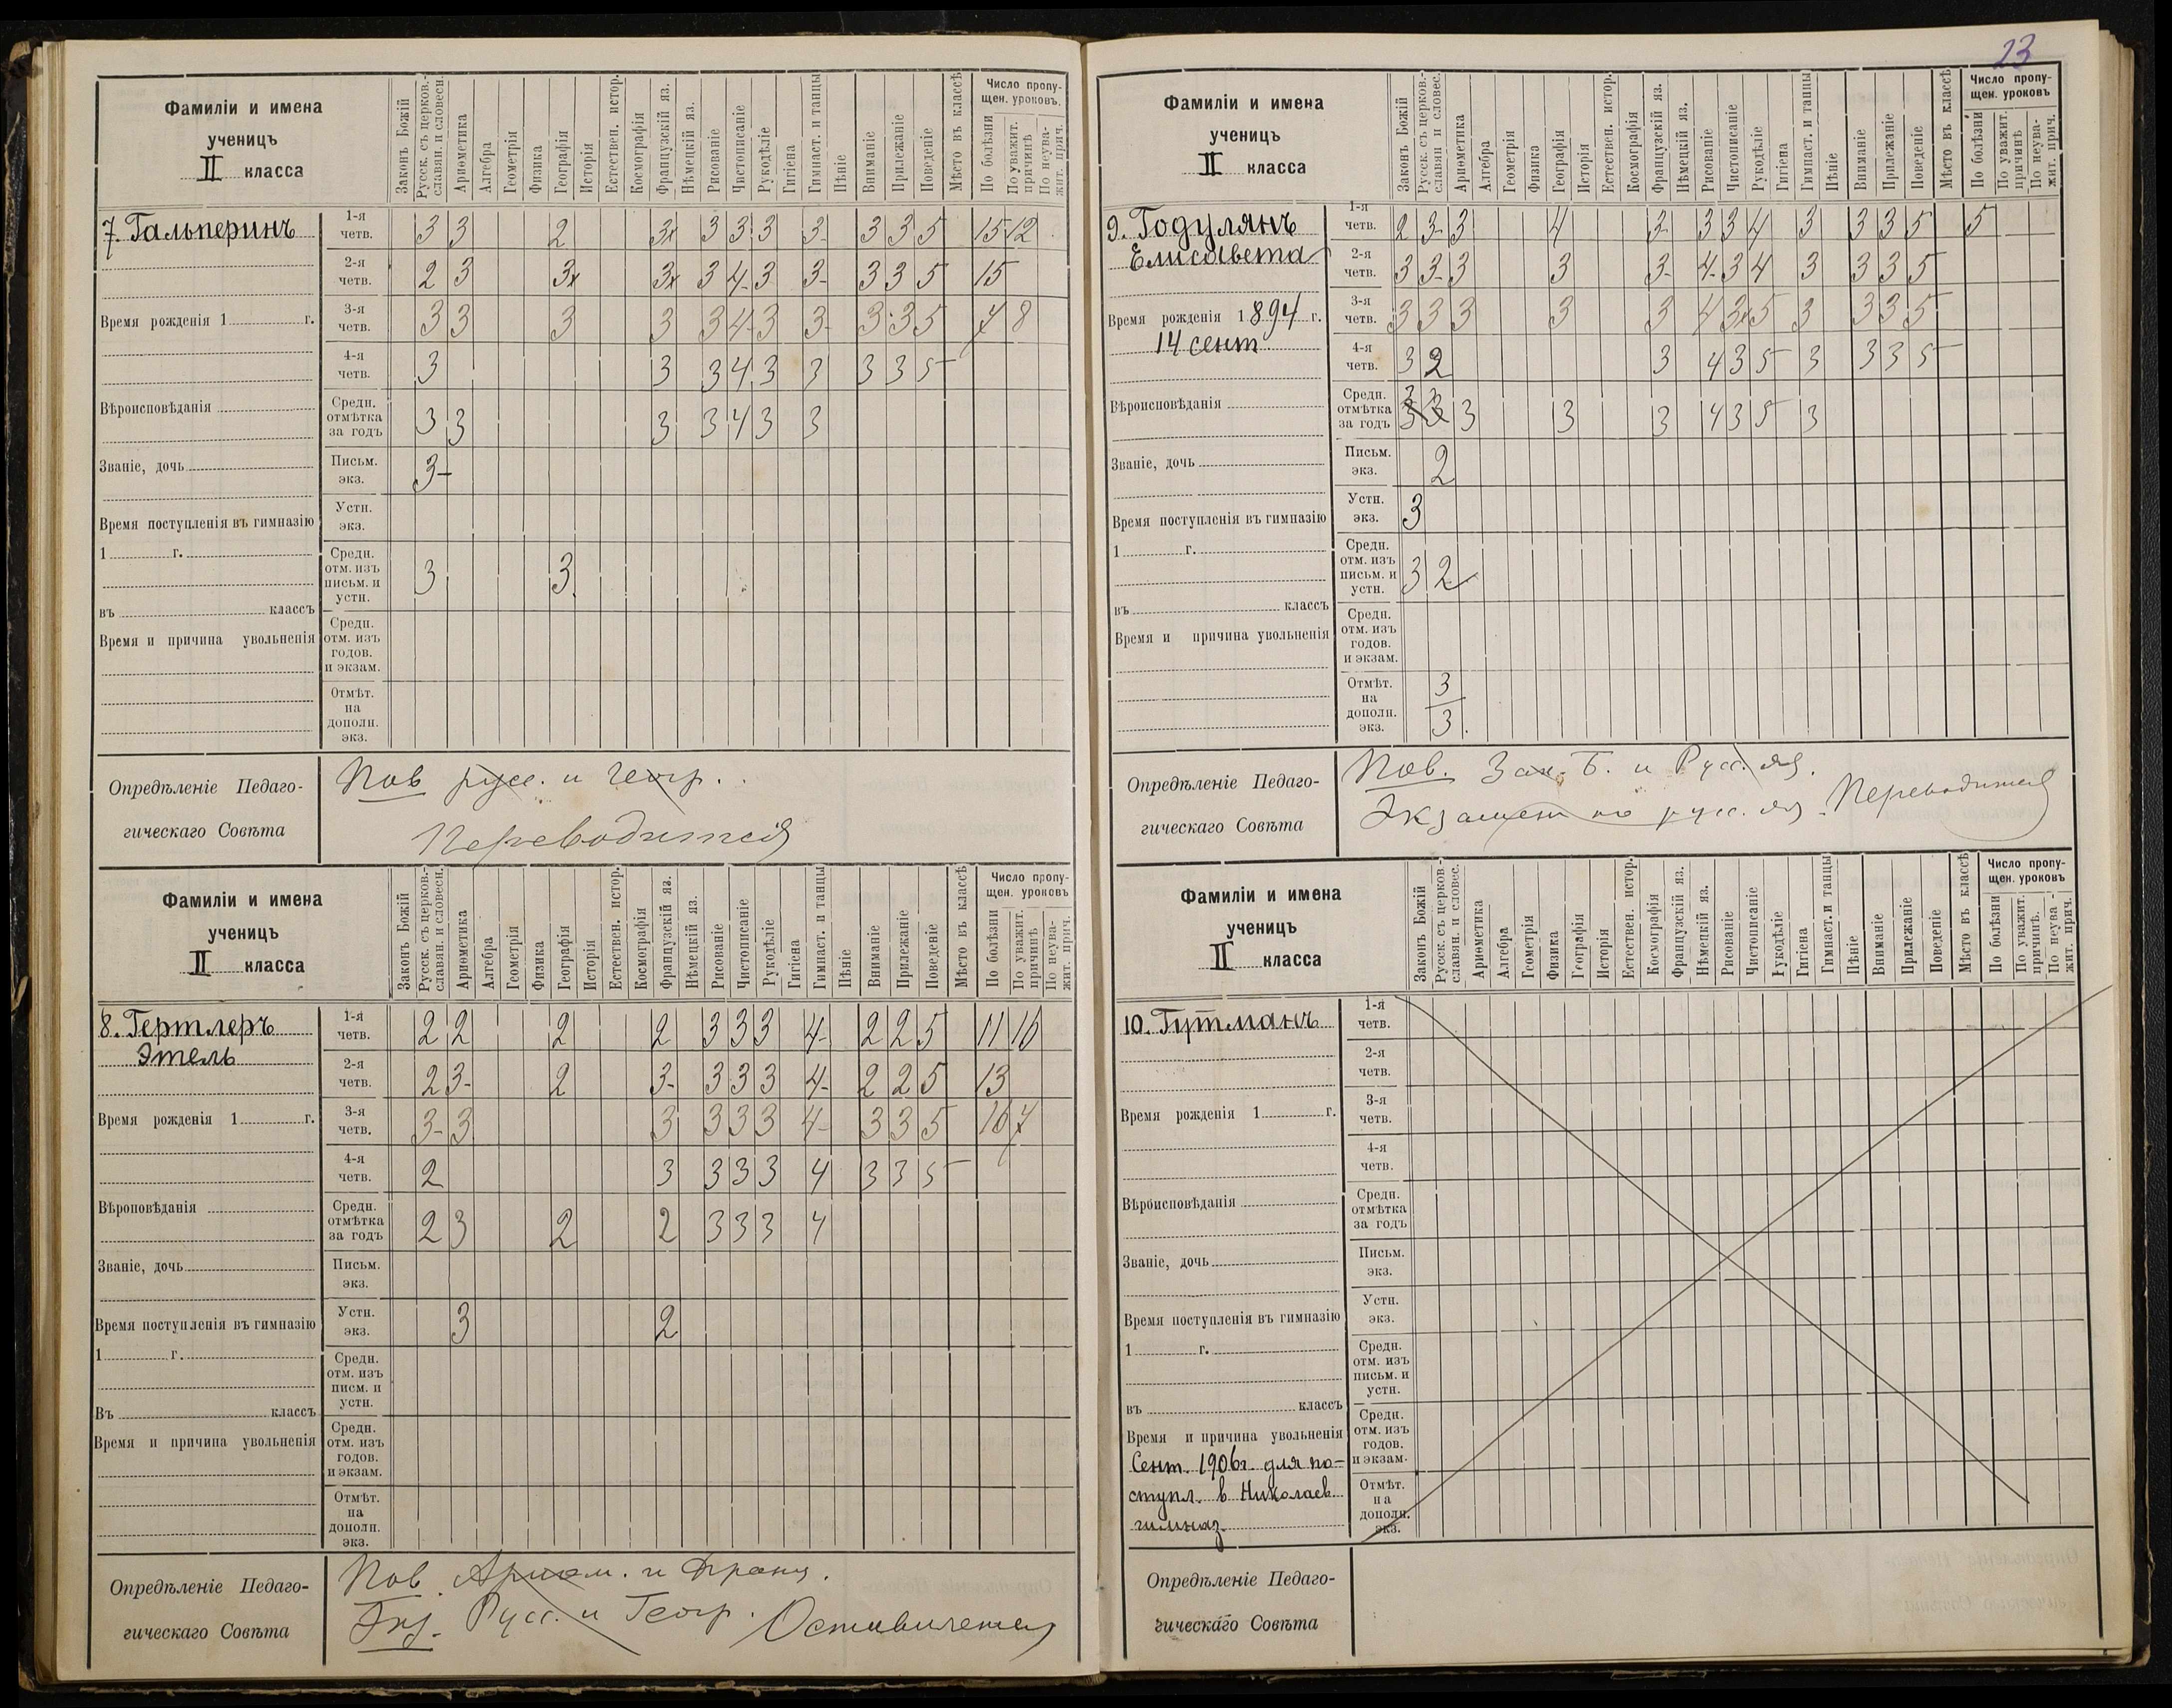 23
Фамиліи и имена
ученицъ
II класса
Законъ Божій
Русск. съ церков.-
славян. и словесн.
Ариѳметика
Алгебра
Геометрія
Физика
Географія
Исторія
Естествен. истор.
Космографія
Французскій яз.
Нѣмецкій яз.
Рисованіе
Чистописаніе
Рукодѣліе
Гигіена
Гимнаст. и танцы
Пѣніе
Вниманіе
Прилежаніе
Поведеніе
Мѣсто въ классѣ
Число пропу-
щен. уроковъ.
По болѣзни
По уважит.
причинѣ
По неува-
жит. прич.
7. Гальперинъ
1-я четв. 3 3 2 3х 3 3 3 3- 3 3 5 15 12
2-я четв. 2 3 3х 3х 3 4- 3 3- 3 3 5 15
Время рожденія 1 г.
3-я четв. 3 3 3 3 3 4- 3 3- 3 3 5 7 8
4-я четв. 3 3 3 4 3 3 3 3 5
Вѣроисповѣданія
Средн. отмѣтка за годъ 3 3 3 3 4 3 3
Званіе, дочь
Письм. экз. 3-
Время поступленія въ гимназію
Устн. экз.
1 г.
Средн. отм. изъ письм. и устн. 3 3
въ классъ
Время и причина увольненія
Средн. отм. изъ годов. и экзам.
Отмѣт. на дополн. экз.
Опредѣленіе Педаго-
гическаго Совѣта
Пов русс. и геогр.
Переводится
Фамиліи и имена
ученицъ
II класса
Законъ Божій
Русск. съ церков.-
славян. и словесн.
Ариѳметика
Алгебра
Геометрія
Физика
Географія
Исторія
Естествен. истор.
Космографія
Французскій яз.
Нѣмецкій яз.
Рисованіе
Чистописаніе
Рукодѣліе
Гигіена
Гимнаст. и танцы
Пѣніе
Вниманіе
Прилежаніе
Поведеніе
Мѣсто въ классѣ
Число пропу-
щен. уроковъ
По болѣзни
По уважит.
причинѣ
По неува-
жит. прич.
8. Гертлеръ
Этель
1-я четв. 2 2 2 2 3 3 3 4- 2 2 5 11 10
2-я четв. 2 3- 2 3- 3 3 3 4- 2 2 5 13
Время рожденія 1 г.
3-я четв. 3- 3 3 3 3 3 4- 3 3 5 16 7
4-я четв. 2 3 3 3 3 4 3 3 5
Вѣроповѣданія
Средн. отмѣтка за годъ 2 3 2 2 3 3 3 4
Званіе, дочь
Письм. экз.
Время поступленія въ гимназію
Устн. экз. 3 2
1 г.
Средн. отм. изъ писм. и устн.
Въ классъ
Время и причина увольненія
Средн. отм. изъ годов. и экзам.
Отмѣт. на дополн. экз.
Опредѣленіе Педаго-
гическаго Совѣта
Пов. Ариѳм. и Франц.
Экз. Русс. и Геогр.
Фамиліи и имена
ученицъ
II класса
Законъ Божій
Русск. съ церков.-
славян и словес.
Ариѳметика
Алгебра
Геометрія
Физика
Географія
Исторія
Естествен. истор.
Космографія
Французскій яз.
Нѣмецкій яз.
Рисованіе
Чистописаніе
Рукодѣліе
Гигіена
Гимнаст. и танцы
Пѣніе
Вниманіе
Прилежаніе
Поведеніе
Мѣсто въ классѣ
Число пропу-
щен. уроковъ
По болѣзни
По уважит.
причинѣ
По неува-
жит. прич.
9. Годулянъ
Елисавета
1-я четв. 2 3- 3 4 3- 3 3 4 3 3 3 5 5
2-я четв. 3 3- 3 3 3- 4- 3 4 3 3 3 5
Время рожденія 1894 г.
14 сент.
3-я четв. 3 3 3 3 3 4 3х 5 3 3 3 5
4-я четв. 3 2 3 4 3 5 3 3 3 5
Вѣроисповѣданія
Средн. отмѣтка за годъ 3 3 3 3 3 4 3 5 3
Званіе, дочь
Письм. экз. 2
Время поступленія въ гимназію
Устн. экз. 3
1 г.
Средн. отм. изъ письм. и устн. 3 2
въ классъ
Время и причина увольненія
Средн. отм. изъ годов. и экзам.
Отмѣт. на дополн. экз. 3 3.
Опредѣленіе Педаго-
гическаго Совѣта
Пов. Зак. Б. и Русс. яз.
Экзамен по русс. яз. Переводится
Фамиліи и имена
ученицъ
II класса
Законъ Божій
Русск. съ церков.-
славян. и словес.
Ариѳметика
Алгебра
Геометрія
Физика
Географія
Исторія
Естествен. истор.
Космографія
Французскій яз.
Нѣмецкій яз.
Рисованіе
Чистописаніе
Рукодѣліе
Гигіена
Гимнаст. и танцы
Пѣніе
Вниманіе
Прилежаніе
Поведеніе
Мѣсто въ классѣ
Число пропу-
щен. уроковъ
По болѣзни
По уважит.
причинѣ.
По неува-
жит. прич.
10. Гутманъ
1-я четв.
2-я четв.
Время рожденія 1 г.
3-я четв.
4-я четв.
Вѣроисповѣданія
Средн. отмѣтка за годъ
Званіе, дочь
Письм. экз.
Время поступленія въ гимназію
Устн. экз.
1 г.
Средн. отм. изъ письм. и устн.
въ классъ
Время и причина увольненія
Средн. отм. изъ годов. и экзам.
Сент. 1906г. для по-
ступл. в Николаев.
гимназ.
Отмѣт. на дополн. экз.
Опредѣленіе Педаго-
гическаго Совѣта